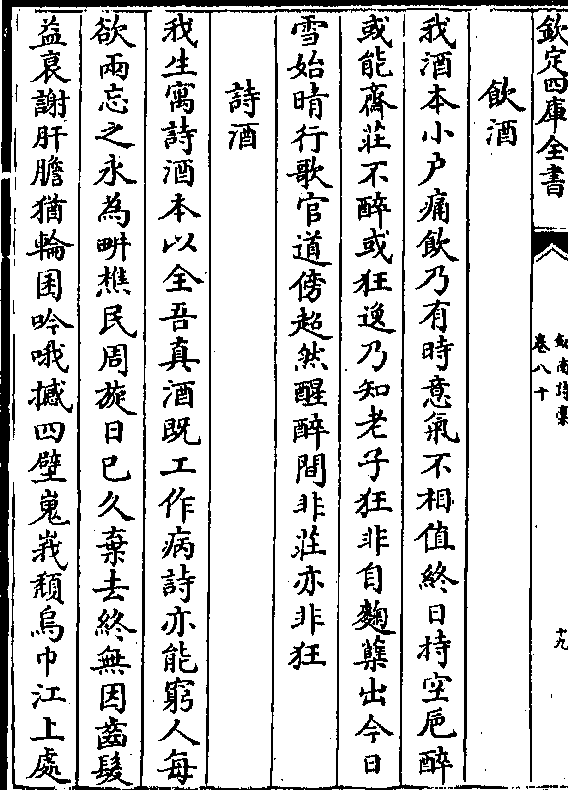 欽定四庫全書
劍南詩稾
卷八十
十九
飲酒
我酒本小户痛飲乃有時意氣不相值終日持空巵醉
或能齋莊不醉或狂逸乃知老子狂非自麴蘖出今日
雪始晴行歌官道傍超然醒醉間非莊亦非狂
詩酒
我生寓詩酒本以全吾真酒既工作病詩亦能窮人每
欲兩忘之永為畊樵民周旋日已久棄去終無因齒髮
益衰謝肝膽猶輪囷吟哦撼四壁嵬峩頹烏巾江上處